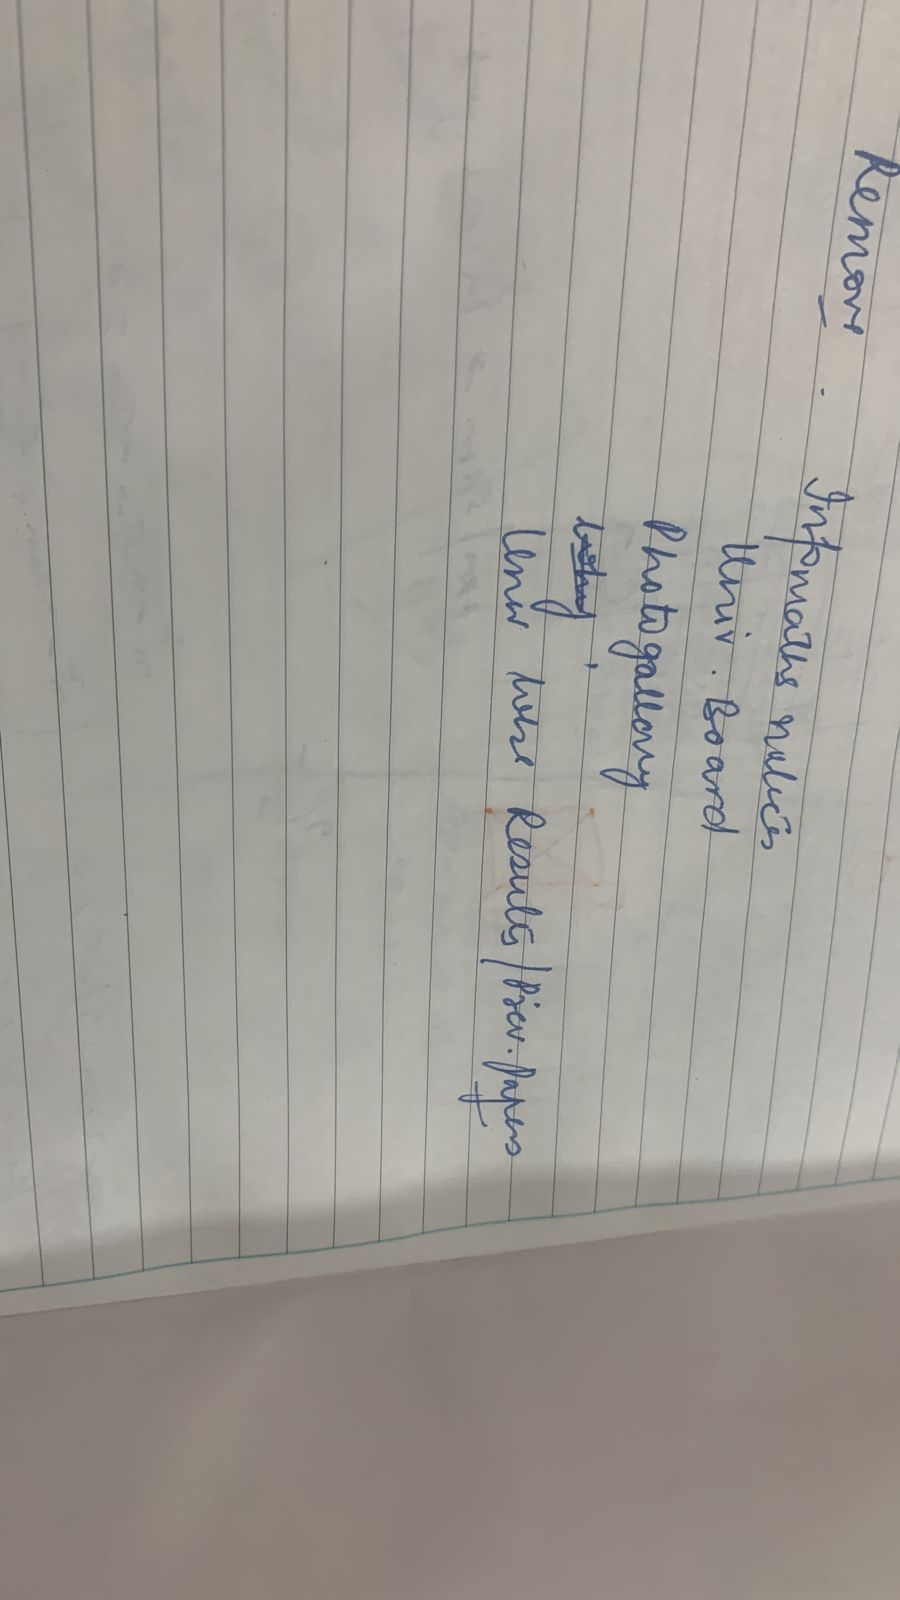 Remove.
Infomaths notices
Univ. Board
Photogallery
Univ wise Results/Prev. Papers